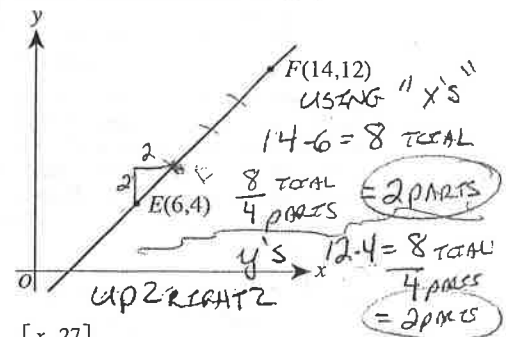 y
F(14,12)
USING "X'S"
14-6 = 8 TOTAL
2
2
E(6,4)
8 TOTAL
4 PARTS
= 2 PARTS
y's
12-4 = 8 TOTAL
4 PARTS
= 2 PARTS
x
O
UP 2 RIGHT 2